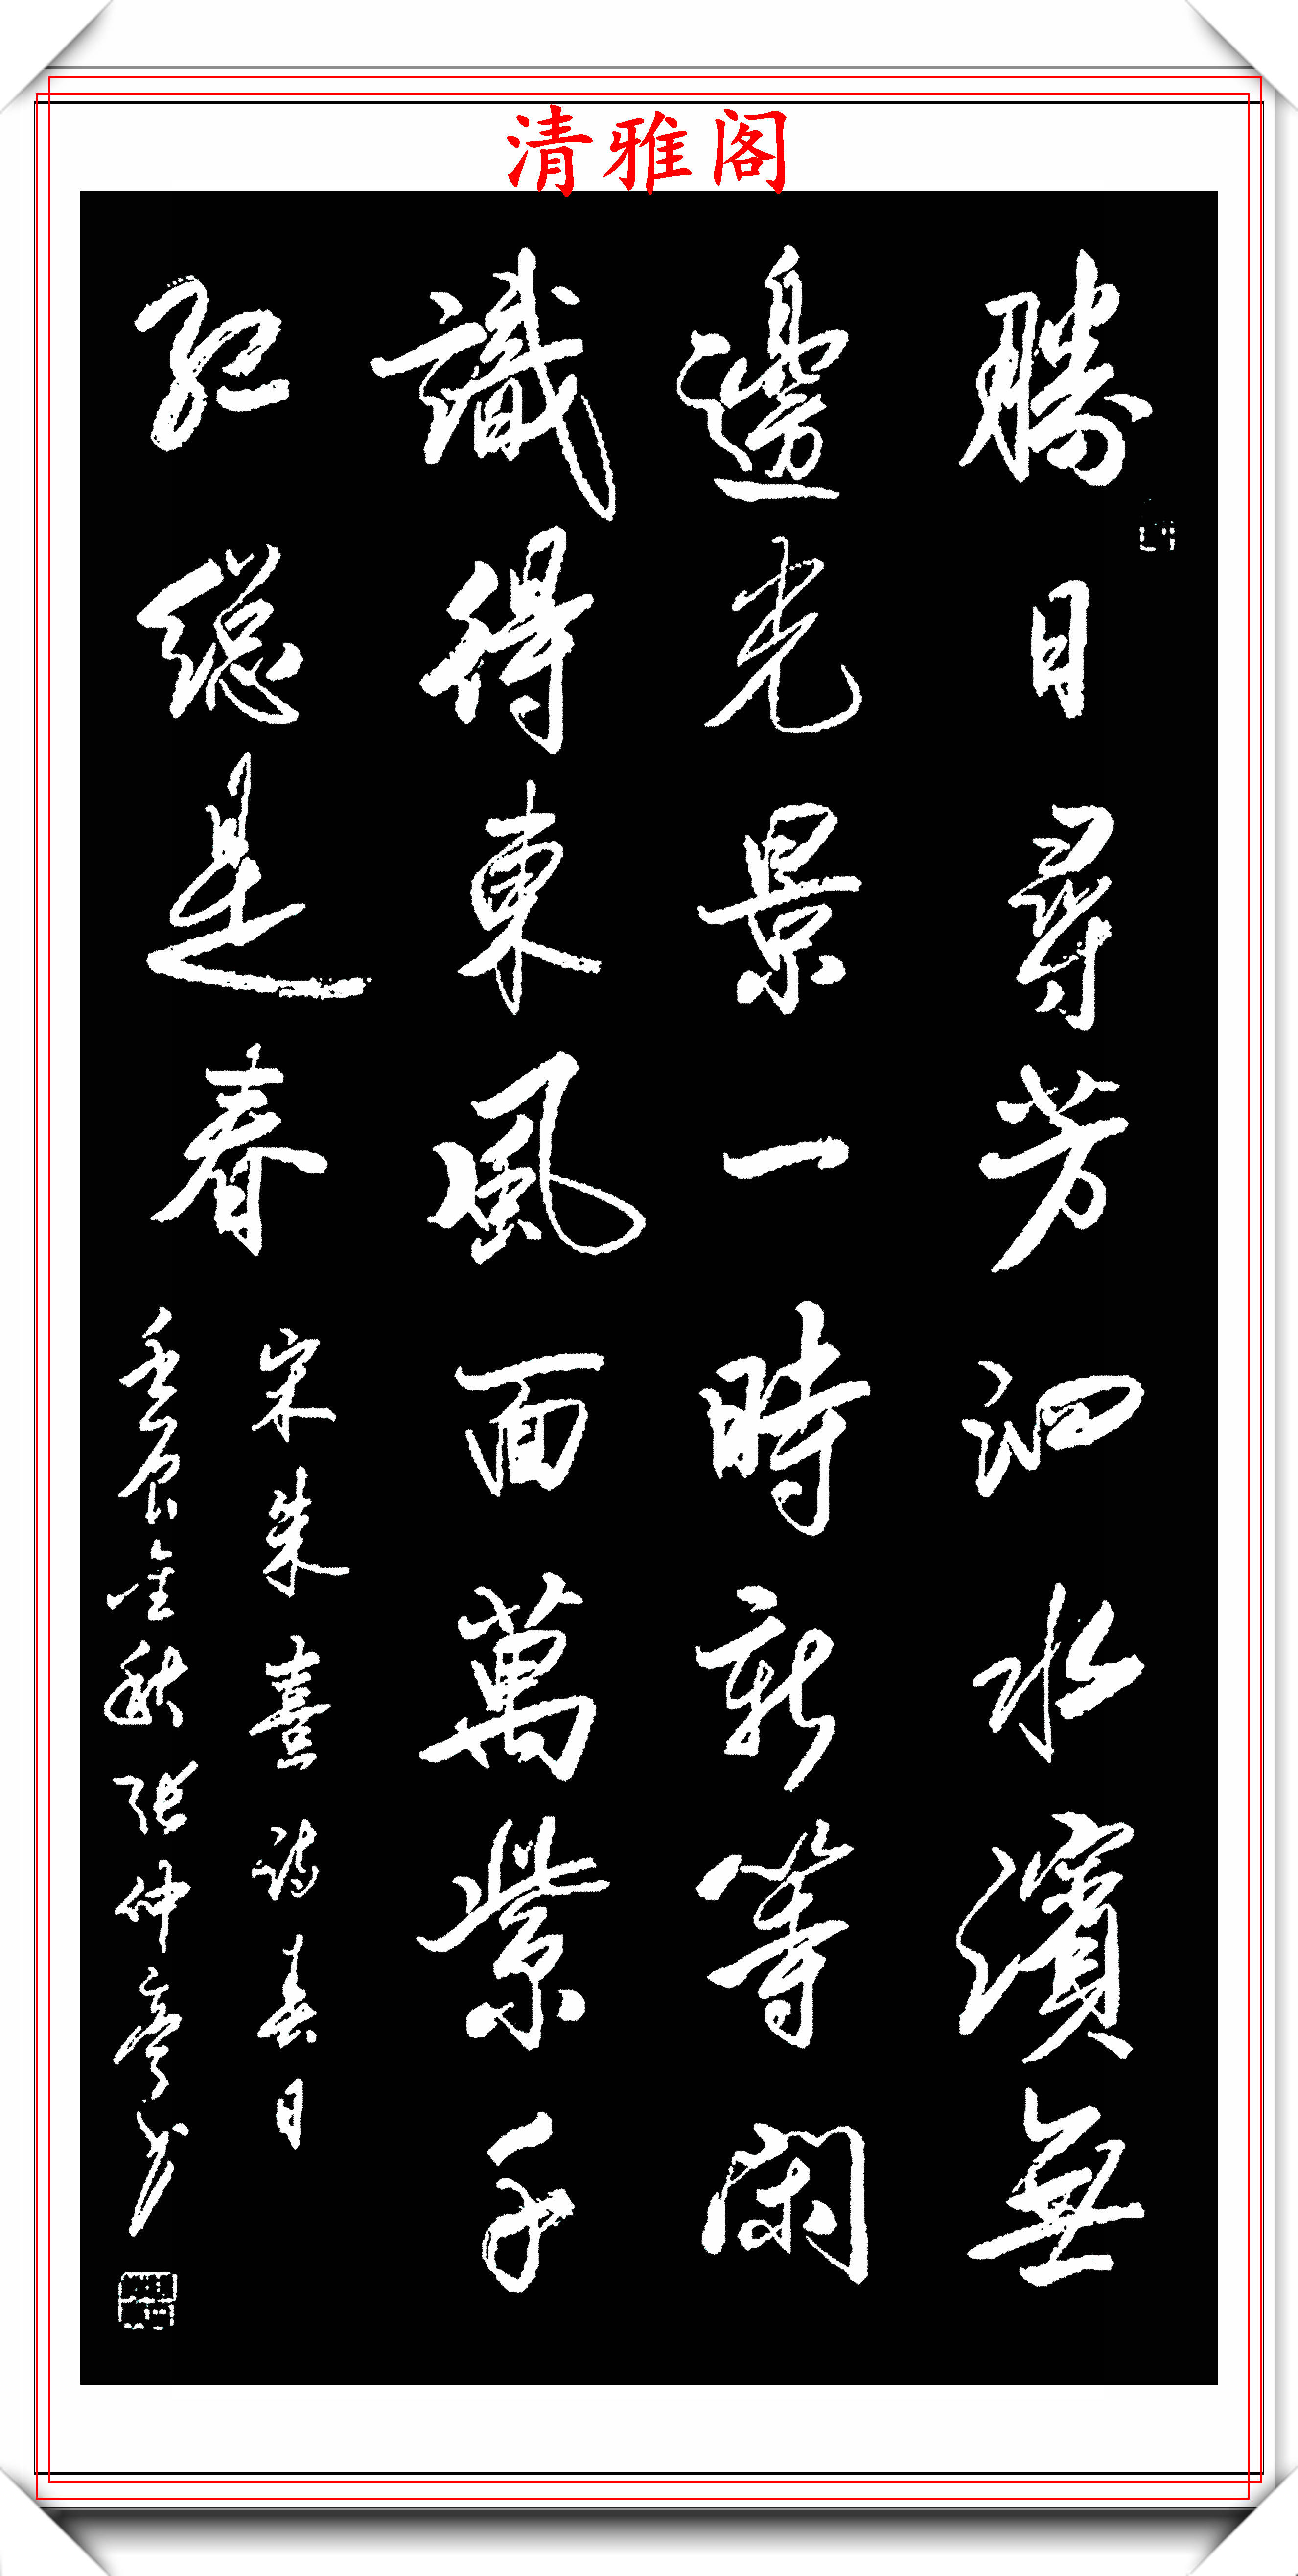 清雅阁
勝日尋芳泗水濱無
邊光景一時新等閑
識得東風面萬紫千
紅總是春
宋朱熹詩春日
壬辰金秋張仲亭書